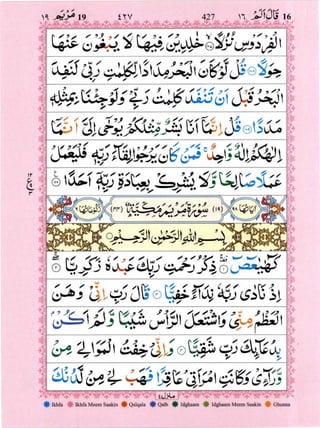 ١٩ مَرْيَم 19
٤٢٧
427
١٦ قَالَ اَلَمْ 16
الْفِرْدَوْسِ نُزُلًا ۝ خٰلِدِيْنَ فِيْهَا لَا يَبْغُوْنَ عَنْهَا
حِوَلًا ۝ قُلْ لَّوْ كَانَ الْبَحْرُ مِدَادًا لِّكَلِمٰتِ رَبِّيْ لَنَفِدَ
الْبَحْرُ قَبْلَ اَنْ تَنْفَدَ كَلِمٰتُ رَبِّيْ وَلَوْ جِئْنَا بِمِثْلِهٖ
مَدَدًا ۝ قُلْ اِنَّمَاۤ اَنَا بَشَرٌ مِّثْلُكُمْ يُوْحٰۤى اِلَيَّ اَنَّمَاۤ
اِلٰهُكُمْ اِلٰهٌ وَّاحِدٌ ۚ فَمَنْ كَانَ يَرْجُوْا لِقَآءَ رَبِّهٖ فَلْيَعْمَلْ
عَمَلًا صَالِحًا وَّلَا يُشْرِكْ بِعِبَادَةِ رَبِّهٖۤ اَحَدًا ۝
اٰيَاتُهَا ٩٨ (١٩) سُوْرَةُ مَرْيَمَ مَكِّيَّةٌ (٤٤) رُكُوْعَاتُهَا ٦
بِسْمِ اللهِ الرَّحْمٰنِ الرَّحِيْمِ
كٓهٰيٰعٓصٓ ۝ ذِكْرُ رَحْمَتِ رَبِّكَ عَبْدَهٗ زَكَرِيَّا ۝
اِذْ نَادٰى رَبَّهٗ نِدَآءً خَفِيًّا ۝ قَالَ رَبِّ اِنِّيْ وَهَنَ
الْعَظْمُ مِنِّيْ وَاشْتَعَلَ الرَّاْسُ شَيْبًا وَّلَمْ اَكُنْۢ
بِدُعَآئِكَ رَبِّ شَقِيًّا ۝ وَاِنِّيْ خِفْتُ الْمَوَالِيَ مِنْ
وَّرَآءِيْ وَكَانَتِ امْرَاَتِيْ عَاقِرًا فَهَبْ لِيْ مِنْ لَّدُنْكَ
منزل ٤
Ikhfa Ikhfa Meem Saakin Qalqala Qalb Idghaam Idghaam Meem Saakin Ghunna